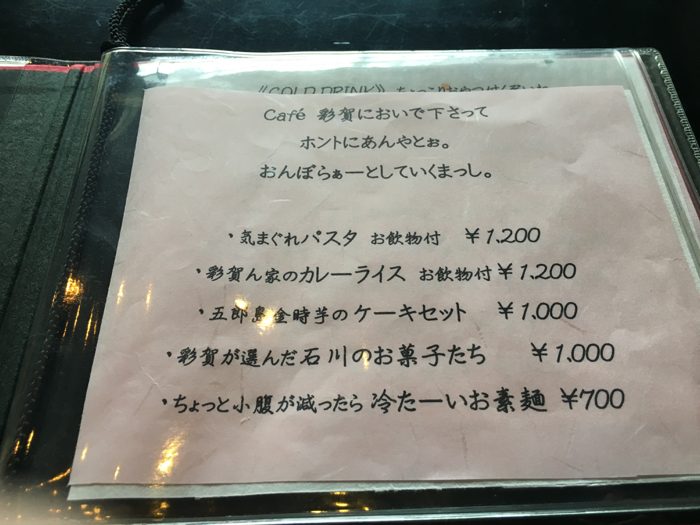 《COLD DRINK》
Café 彩賀においで下さって
ホントにあんやとぉ。
おんぼらぁーとしていくまっし。
・気まぐれパスタ お飲物付 ￥1,200
・彩賀ん家のカレーライス お飲物付 ￥1,200
・五郎島金時芋のケーキセット ￥1,000
・彩賀が選んだ石川のお菓子たち ￥1,000
・ちょっと小腹が減ったら 冷たーいお素麺 ￥700